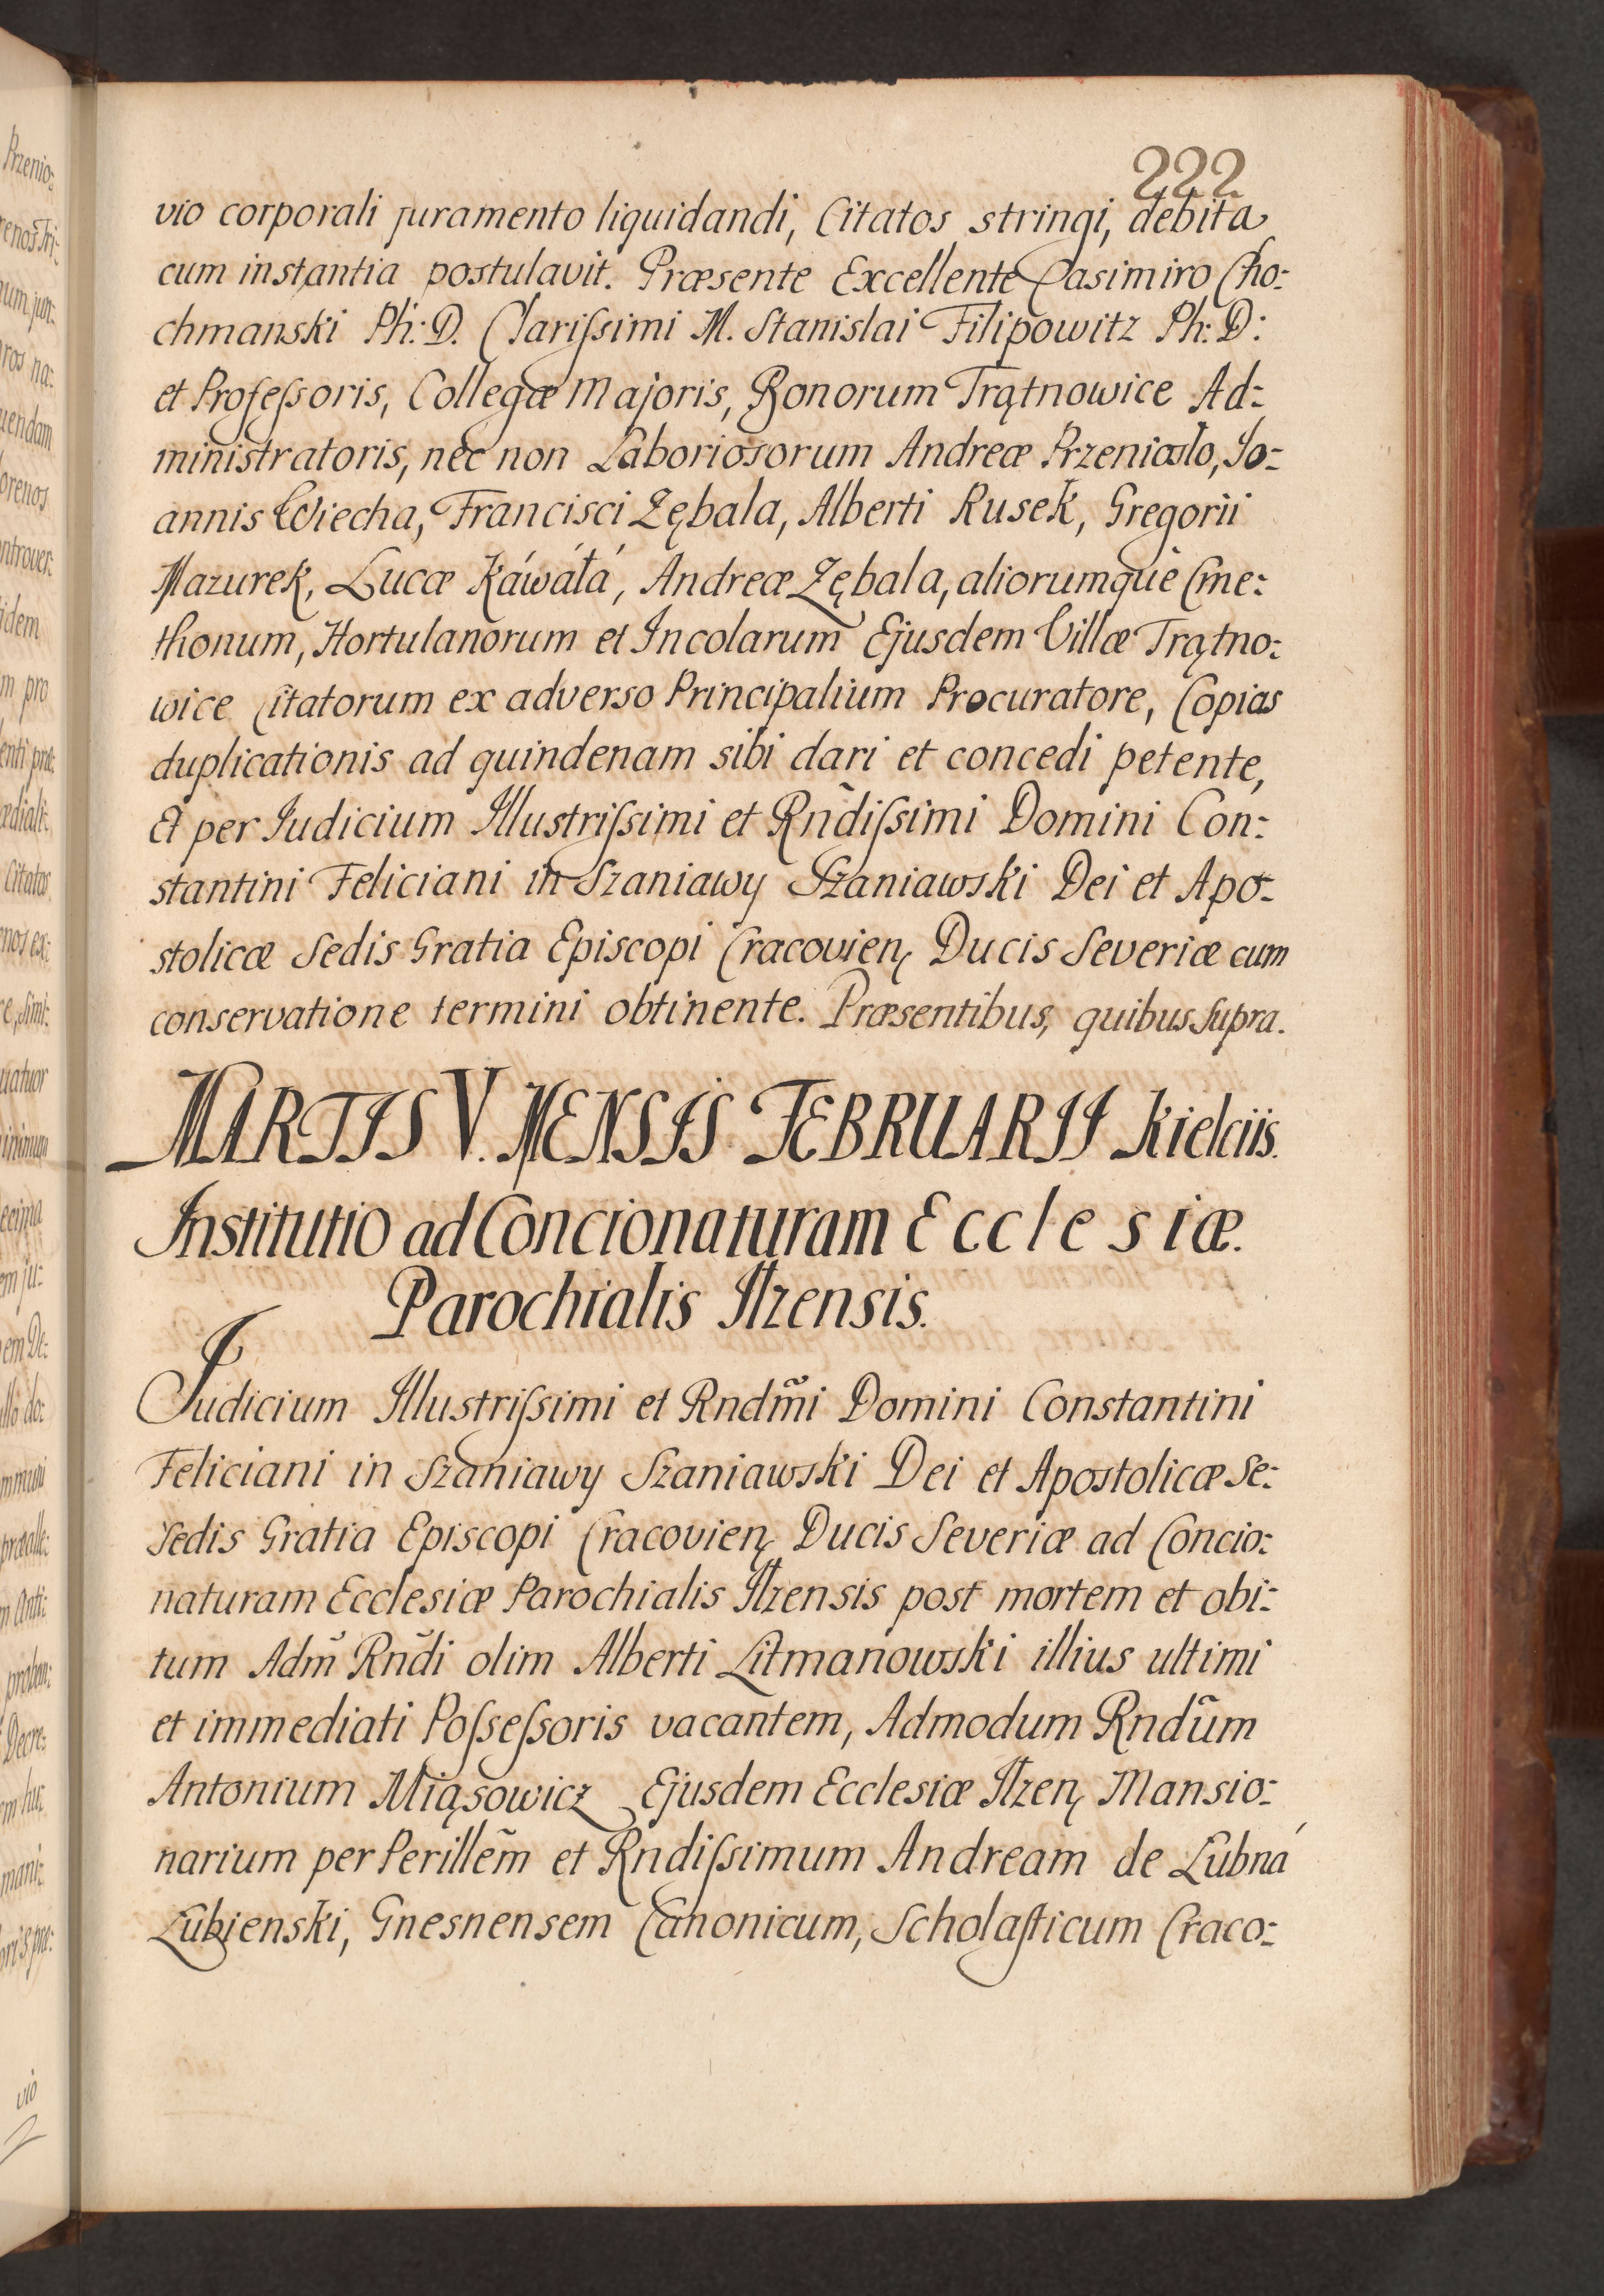 222
vio corporali juramento liquidandi, Citatos stringi, debita
cum instantia postulavit. Præsente Excellente Casimiro Cho:
chmanski Ph: D. Clarißimi M. Stanislai Filipowitz Ph: D:
et Profeßoris, Collegæ Majoris, Bonorum Trątnowice Ad:
ministratoris, nec non Laboriosorum Andreæ Przeniosło, Jo:
annis Wiecha, Francisci Zębala, Alberti Rusek, Gregorii
Mazurek, Lucæ Káwáłá, Andreæ Zębala, aliorumque Cme:
thonum, Hortulanorum et Incolarum Ejusdem Villæ Trątno:
wice Citatorum ex adverso Principalium Procuratore, Copias
duplicationis ad quindenam sibi dari et concedi petente,
Et per Judicium Illustrißimi et Rñdißimi Domini Con:
stantini Feliciani in Szaniawy Szaniawski Dei et Apo:
stolicæ Sedis Gratia Episcopi Cracovien, Ducis Severiæ cum
conservatione termini obtinente. Præsentibus, quibus Supra.
MARTIS V. MENSIS FEBRUARII Kielciis.
Institutio ad Concionaturam Ecclesiæ.
Parochialis Ilzensis.
Judicium Illustrißimi et Rndm̃i Domini Constantini
Feliciani in Szaniawy Szaniawski Dei et Apostolicæ Se:
Sedis Gratia Episcopi Cracovien, Ducis Severiæ ad Concio:
naturam Ecclesiæ Parochialis Ilzensis post mortem et obi:
tum Adm̃ Rñdi olim Alberti Litmanowski illius ultimi
et immediati Poßeßoris vacantem, Admodum Rndũm
Antonium Miąsowicz Ejusdem Ecclesiæ Ilzen, Mansio:
narium per Perillẽm et Rndißimum Andream de Lubná
Lubienski, Gnesnensem Canonicum, Scholasticum Craco:
vio